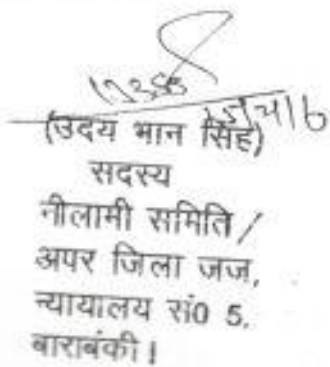 (उदय भान सिंह)
सदस्य
नीलामी समिति /
अपर जिला जज,
न्यायालय सं0 5,
बाराबंकी।